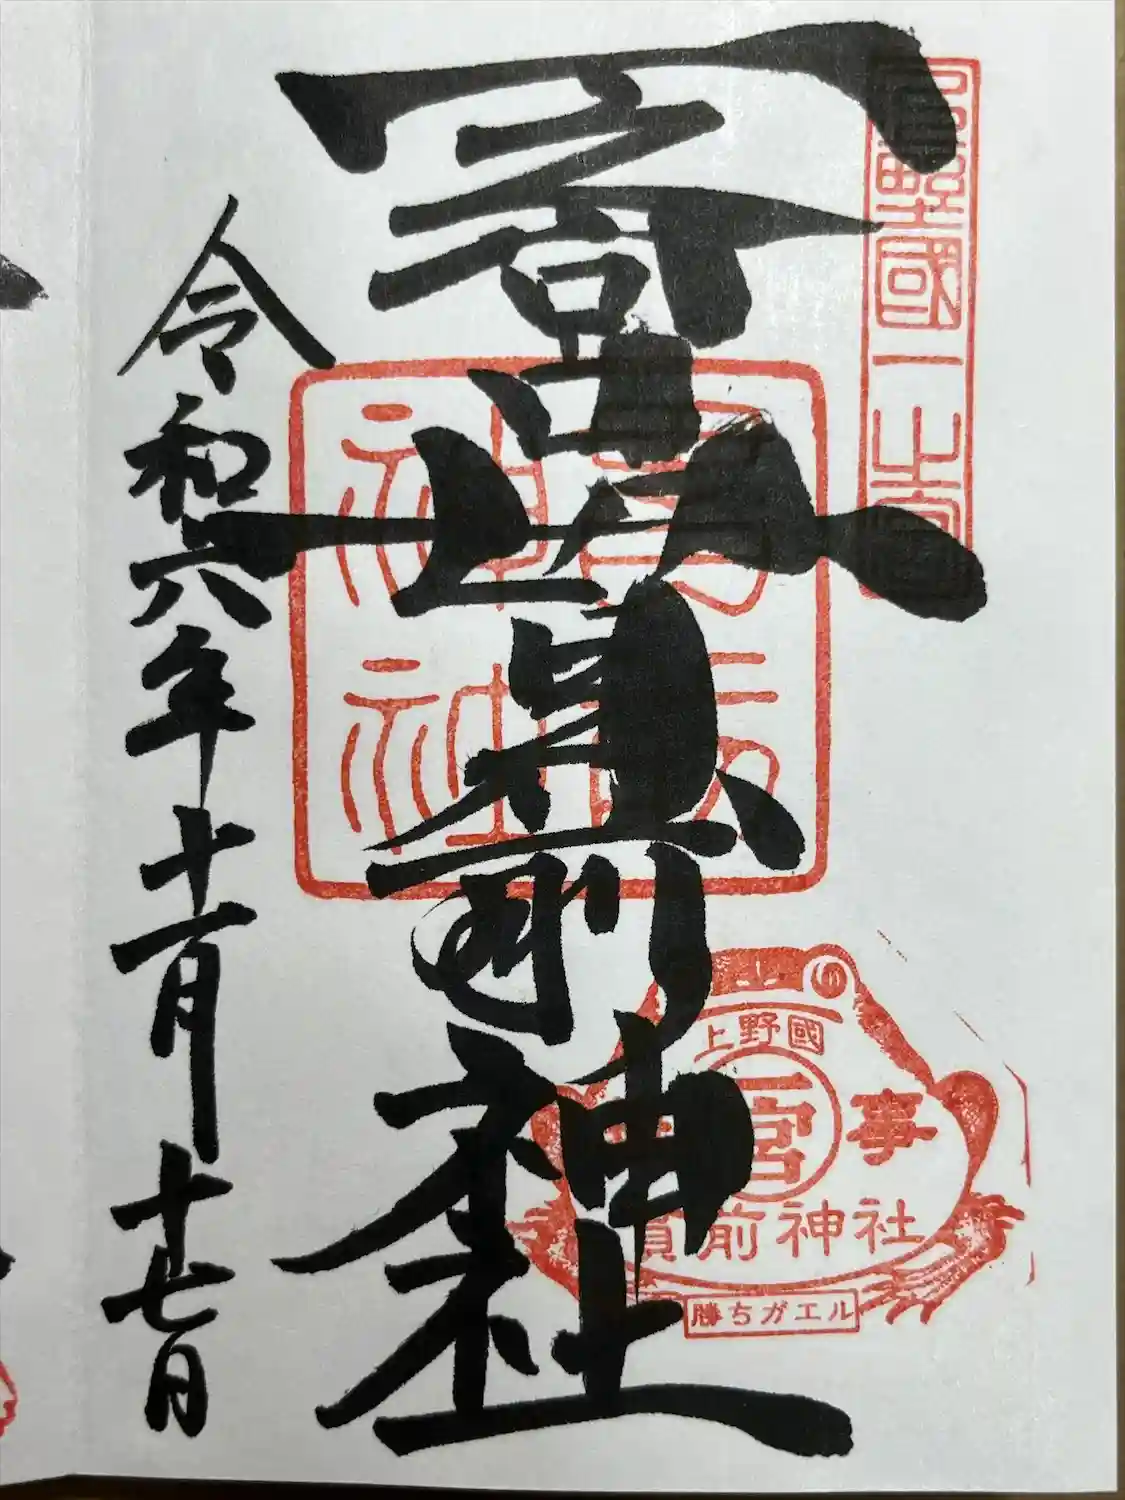 上野國一之宮
一宮貫前神社
神社
上野國
一宮
事
貫前神社
勝ちガエル
令和六年十一月十七日